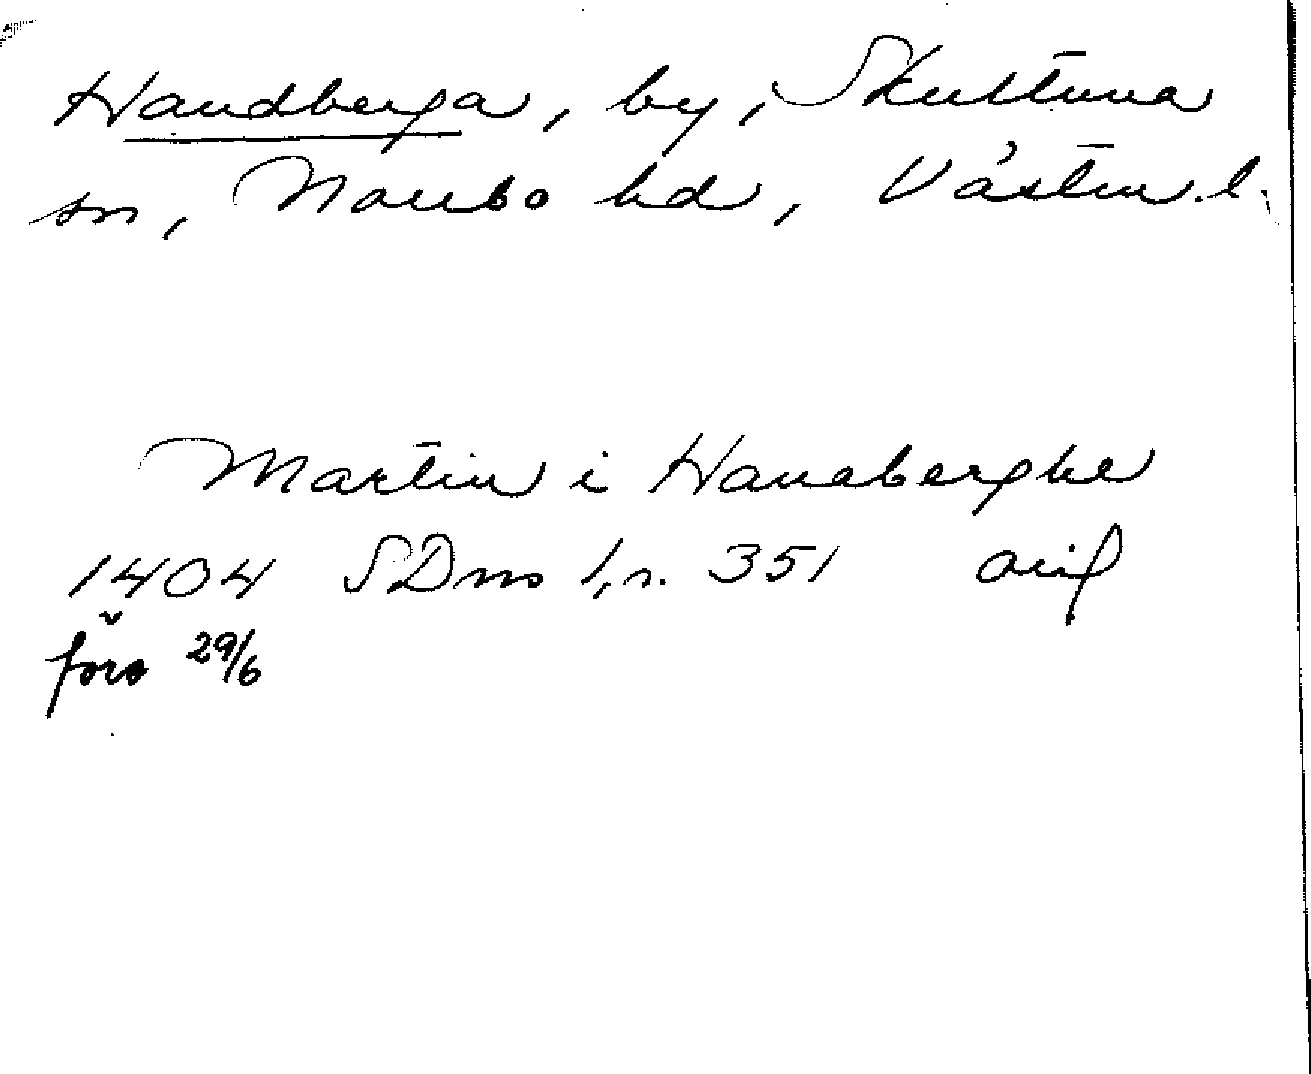 Handberga, by, Skultuna
sn, Norrbo hd, Västm. l.
Martin i Hanaberghe
1404 SDns 1, s. 351 orig
förs 29/6